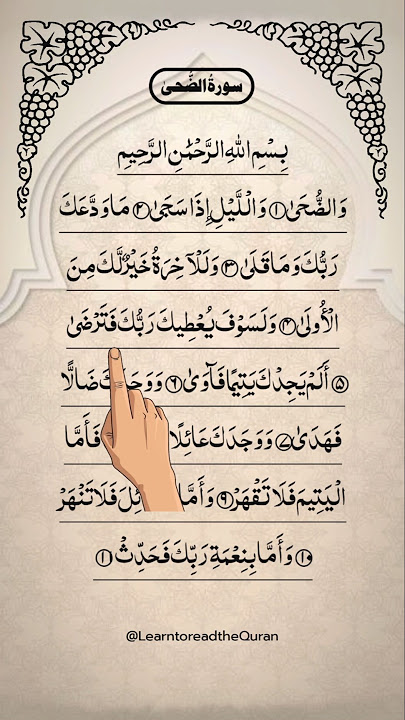 سورة الضحى
بِسْمِ اللهِ الرَّحْمٰنِ الرَّحِيمِ
وَالضُّحَىٰ ١ وَاللَّيْلِ إِذَا سَجَىٰ ٢ مَا وَدَّعَكَ
رَبُّكَ وَمَا قَلَىٰ ٣ وَلَلْآخِرَةُ خَيْرٌ لَّكَ مِنَ
الْأُولَىٰ ٤ وَلَسَوْفَ يُعْطِيكَ رَبُّكَ فَتَرْضَىٰ
٥ أَلَمْ يَجِدْكَ يَتِيمًا فَآوَىٰ ٦ ضَالًّا
فَهَدَىٰ ٧ وَوَجَدَكَ عَائِلًا فَأَمَّا
الْيَتِيمَ فَلَا تَقْهَرْ ٩ وَأَمَّا فَلَا تَنْهَرْ
١٠ وَأَمَّا بِنِعْمَةِ رَبِّكَ فَحَدِّثْ ١١
@LearntoreadtheQuran